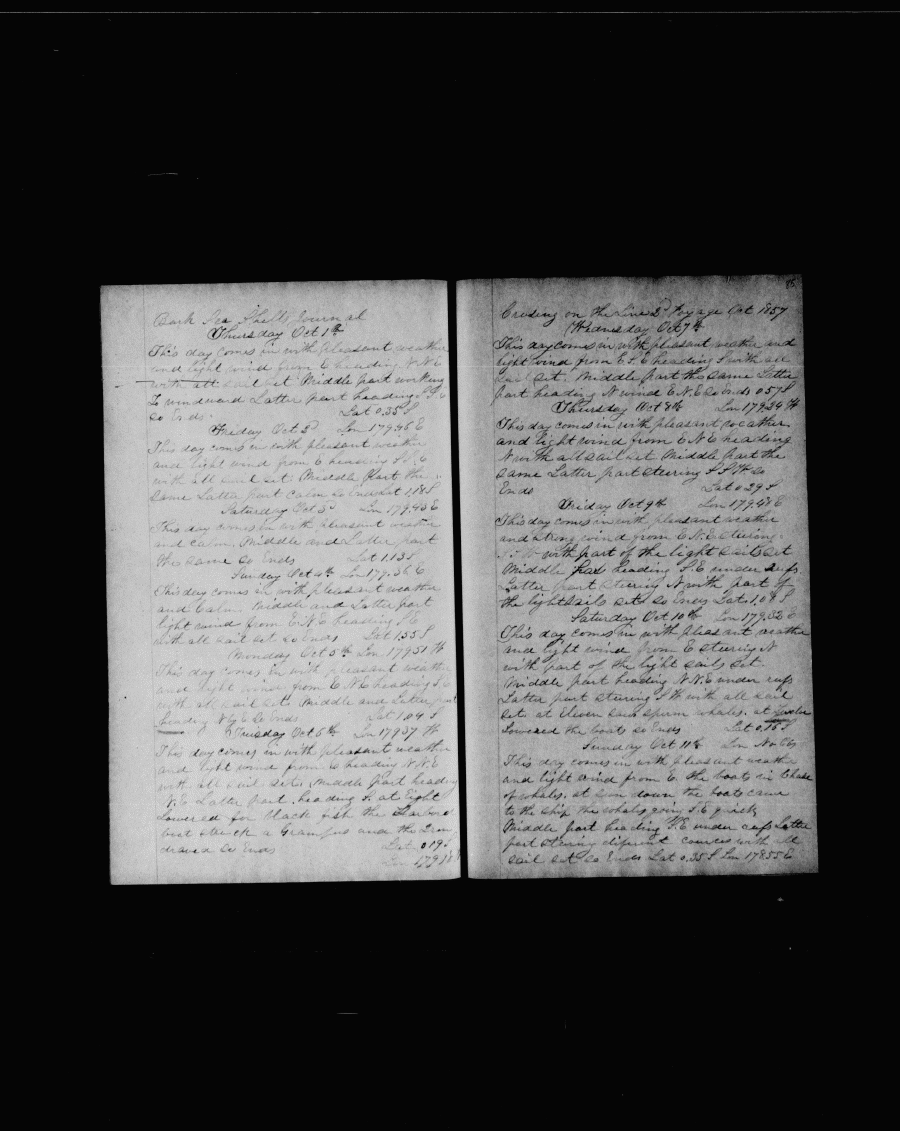 Bark Sea Shells Journal
Thursday Oct 1th
This day comes in with pleasant weather
and light wind from E heading N.N.E
with all sail set Middle part working
To windward Latter part heading S.S.E
So Ends. Lat 0.35 S
Friday Oct 2d Lon 179.48 E
This day comes in with pleasant weather
and light wind from E heading
with all sail set Middle Part the
same Latter part calm So Ends Lat 1,18 S
Saturday Oct 3d Lon 179.43 E
This day comes in with pleasant weather
and calm. Middle and Latter part
the same So Ends Lat 1.13 S
Sunday Oct 4th Lon 179.36 E
This day comes in with pleasant weather
and Calm. Middle and Latter part
light wind from E.N.E heading S.E
with all sail set So Ends Lat 1.55 S
Monday Oct 5th Lon 179 51 W
This day comes in with pleasant weather
and light wind from E N.E heading S.E
with all sail set. Middle and Latter part
heading N.E So Ends Lat 1.04 S
Tuesday Oct 6th Lon 179 37 W
This day comes in with pleasant weather
and light wind from E heading N.N.E
with all sail set. Middle Part heading
N.E Latter part heading S. at Eight
Lowered for black fish the Starbord
boat struck a Grampus and the Iron
drawed So Ends Lat 0 19 S
Lon 179 18
86
Crusing on the Line 2d Voyage Oct 1857
Wednesday Oct 7th
This day comes in with pleasant weather and
light wind from E.S.E heading S with all
sail set. Middle part the same Latter
part heading N wind E.N.E So Ends 0 57 S
Thursday Oct 8th Lon 179.34 W
This day comes in with pleasant weather
and light wind from E N E heading
N with all sail set Middle part the
same Latter part steering S S W So
Ends Lat 0 29 S
Friday Oct 9th Lon 179.48 E
This day comes in with pleasant weather
and strong wind from E N.E steering
with part of the light sails set
Middle Part heading S.E under reefs
Latter part steering N with part of
the light sails set So Ends Lat 1,08 S
Saturday Oct 10th Lon 179.32 E
This day comes in with pleasant weather
and light wind from E steering N
with part of the light sails set.
Middle part heading N.N.E under reefs
Latter part steering S W with all sail
set at Eleven saw sperm whales. at twelve
Lowered the boats So Ends Lat 0,15 S
Sunday Oct 11th Lon No Obs
This day comes in with pleasant weather
and light wind from E. the boats in Chase
of whales, at sun down the boats came
to the ship the whales going S.E quick
Middle part heading S.E under reefs Latter
part steering diferent courses with all
sail set So Ends Lat 0.35 S Lon 178.55 E